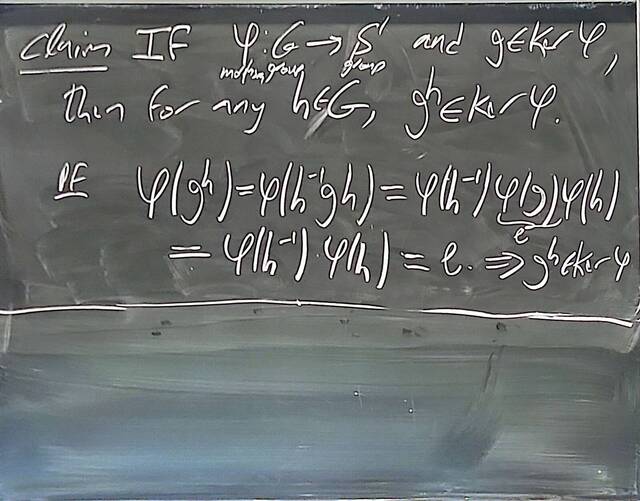 Claim IF φ: G → S and g ∈ ker φ,
group
then for any h ∈ G, g^h ∈ ker φ.
PF φ(g^h) = φ(h^-1 g h) = φ(h^-1) φ(g) φ(h)
e
= φ(h^-1) · φ(h) = e. ⇒ g^h ∈ ker φ